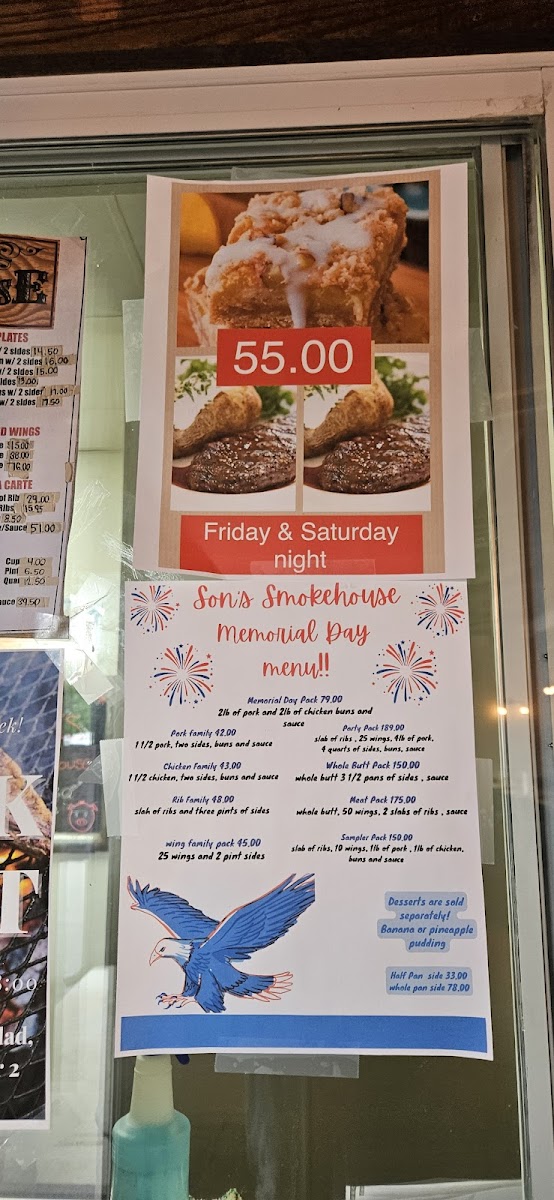 S
SE
PLATES
/ 2 sides 14.50
n w/ 2 sides 16.00
/ 2 sides 15.00
ides 13.00
s w/ 2 sides 17.00
w/ 2 sides 17.50
D WINGS
15.00
38.00
76.00
A CARTE
of Rib 29.00
Ribs 15.95
8.50
/Sauce 51.00
Cup 4.00
Pint 6.50
Quar 12.50
uce 39.50
ek!
K
T
:00
lad,
r 2
55.00
Friday & Saturday
night
Son's Smokehouse
Memorial Day
menu!!
Memorial Day Pack 79.00
2lb of pork and 2lb of chicken buns and
sauce
Pork family 42.00
1 1/2 pork, two sides, buns and sauce
Chicken family 43.00
1 1/2 chicken, two sides, buns and sauce
Rib family 48.00
slab of ribs and three pints of sides
wing family pack 45.00
25 wings and 2 pint sides
Party Pack 189.00
slab of ribs , 25 wings, 4lb of pork,
4 quarts of sides, buns, sauce
Whole Butt Pack 150.00
whole butt 3 1/2 pans of sides , sauce
Meat Pack 175.00
whole butt, 50 wings, 2 slabs of ribs , sauce
Sampler Pack 150.00
slab of ribs, 10 wings, 1lb of pork , 1lb of chicken,
buns and sauce
Desserts are sold
separately!
Banana or pineapple
pudding
Half Pan side 33.00
whole pan side 78.00